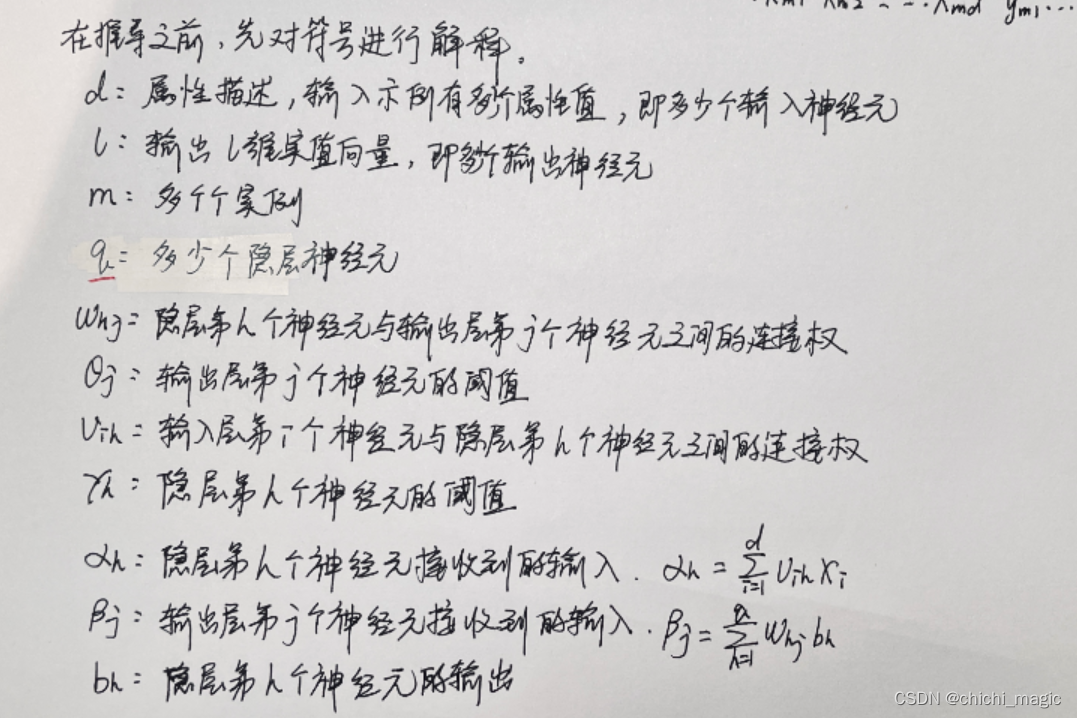 xm1 xm2 ··· xmd ym1 ···
在推导之前,先对符号进行解释。
d: 属性描述,输入示例有多个属性值,即多少个输入神经元
l: 输出l维实值向量,即多个输出神经元
m: 多个实例
q: 多少个隐层神经元
whj: 隐层第h个神经元与输出层第j个神经元之间的连接权
θj: 输出层第j个神经元的阈值
vih: 输入层第i个神经元与隐层第h个神经元之间的连接权
γh: 隐层第h个神经元的阈值
αh: 隐层第h个神经元接收到的输入. αh = ∑_{i=1}^{d} vih xi
βj: 输出层第j个神经元接收到的输入. βj = ∑_{h=1}^{q} whj bh
bh: 隐层第h个神经元的输出
CSDN @chichi_magic